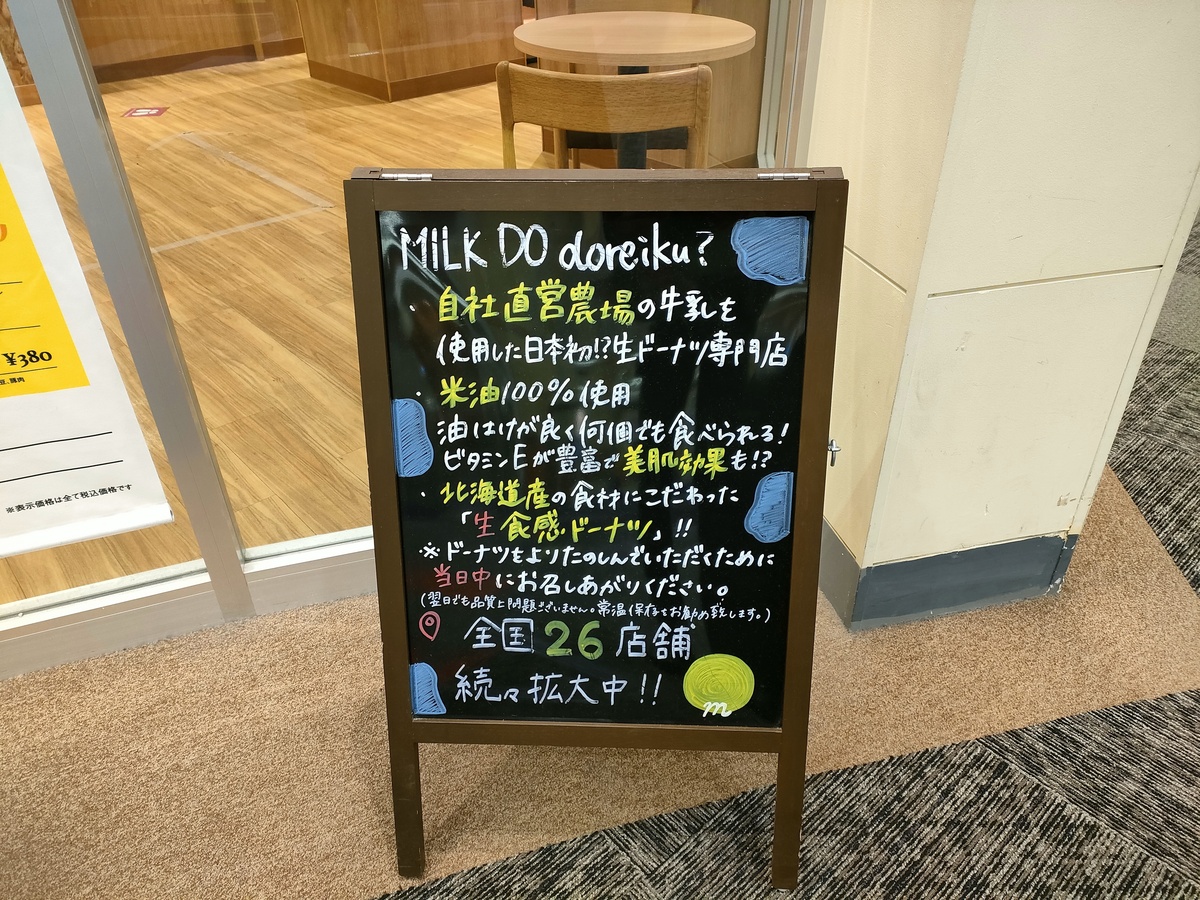 MILK DO doreiku?
・自社直営農場の牛乳を
使用した日本初!?生ドーナツ専門店
・米油100%使用
油はけが良く何個でも食べられる!
ビタミンEが豊富で美肌効果も!?
・北海道産の食材にこだわった
「生食感ドーナツ」!!
※ドーナツをよりたのしんでいただくために
当日中にお召しあがりください。
(翌日でも品質上問題ございません。常温保存をお勧め致します。)
全国26店舗
続々拡大中!!
m
¥380
※表示価格は全て税込価格です